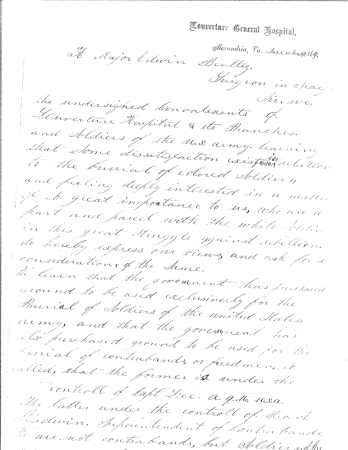 Louverture General Hospital,
Alexandria, Va. December 1864
To Major Edwin Bentley
Surgeon in char
Sir. we
the undersigned Convalescents of
Louverture Hospital & its Branches
and Soldiers of the U.S. army, learning
that Some dissatisfaction exists in relation
to the burrial of colored Soldiers,
and feeling deeply interested in a matter
of So great importance to us, who are a
part and parcel with the white Soldiers
in this great Struggle against rebellion,
do hereby express our views, and ask for a
consideration of the Same.
We learn that the government has purchased
ground to be used exclusively for the
Burial of Soldiers of the united States
army, and that the government has
also purchased ground to be used for the
burial of contrabands, or freedmen, &
that the former is under the
controll of Capt Lee. a.q.m. u.s.a.
The latter under the controll of Rev. A
Gladwin. Superintendent of Contrabands
We are not contrabands, but Soldiers of the